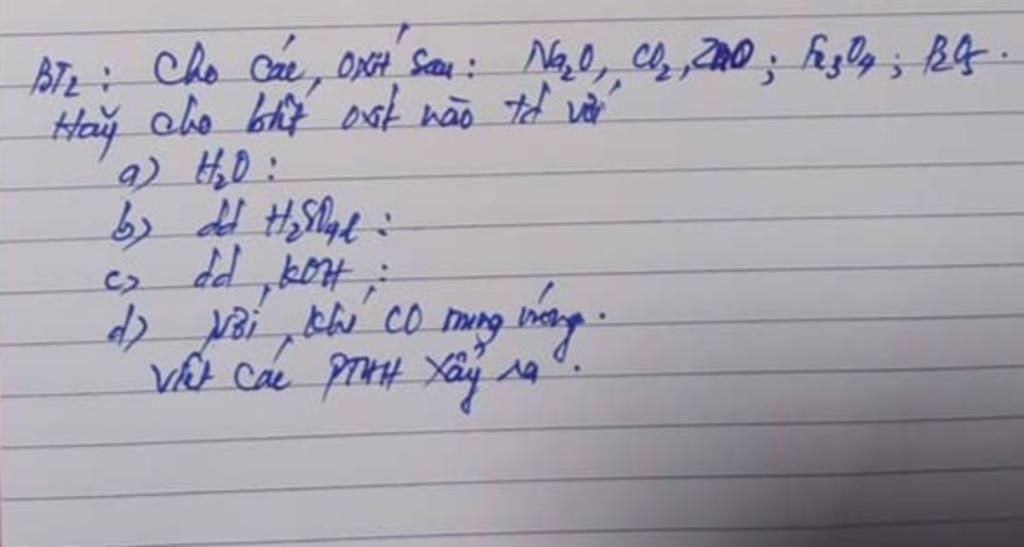 BT2: Cho các oxit sau: Na2O, CO2, ZnO; Fe3O4; P2O5.
Hãy cho biết oxit nào td với
a) H2O:
b) dd H2SO4l:
c) dd KOH:
d) Với khí CO nung nóng.
Viết các PTHH xẩy ra.